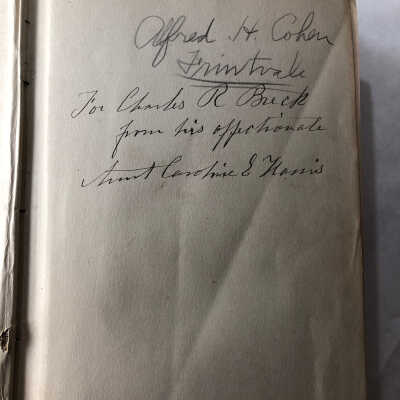 Alfred H. Cohen
Fruitvale
For Charles R Breck
from his affectionate
Aunt Caroline E Harris